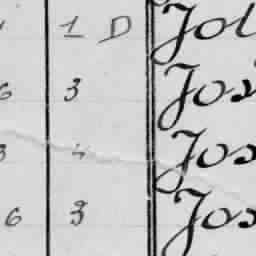 1 D Jol
6 3 Jos
3 4 Jos
6 3 Jos